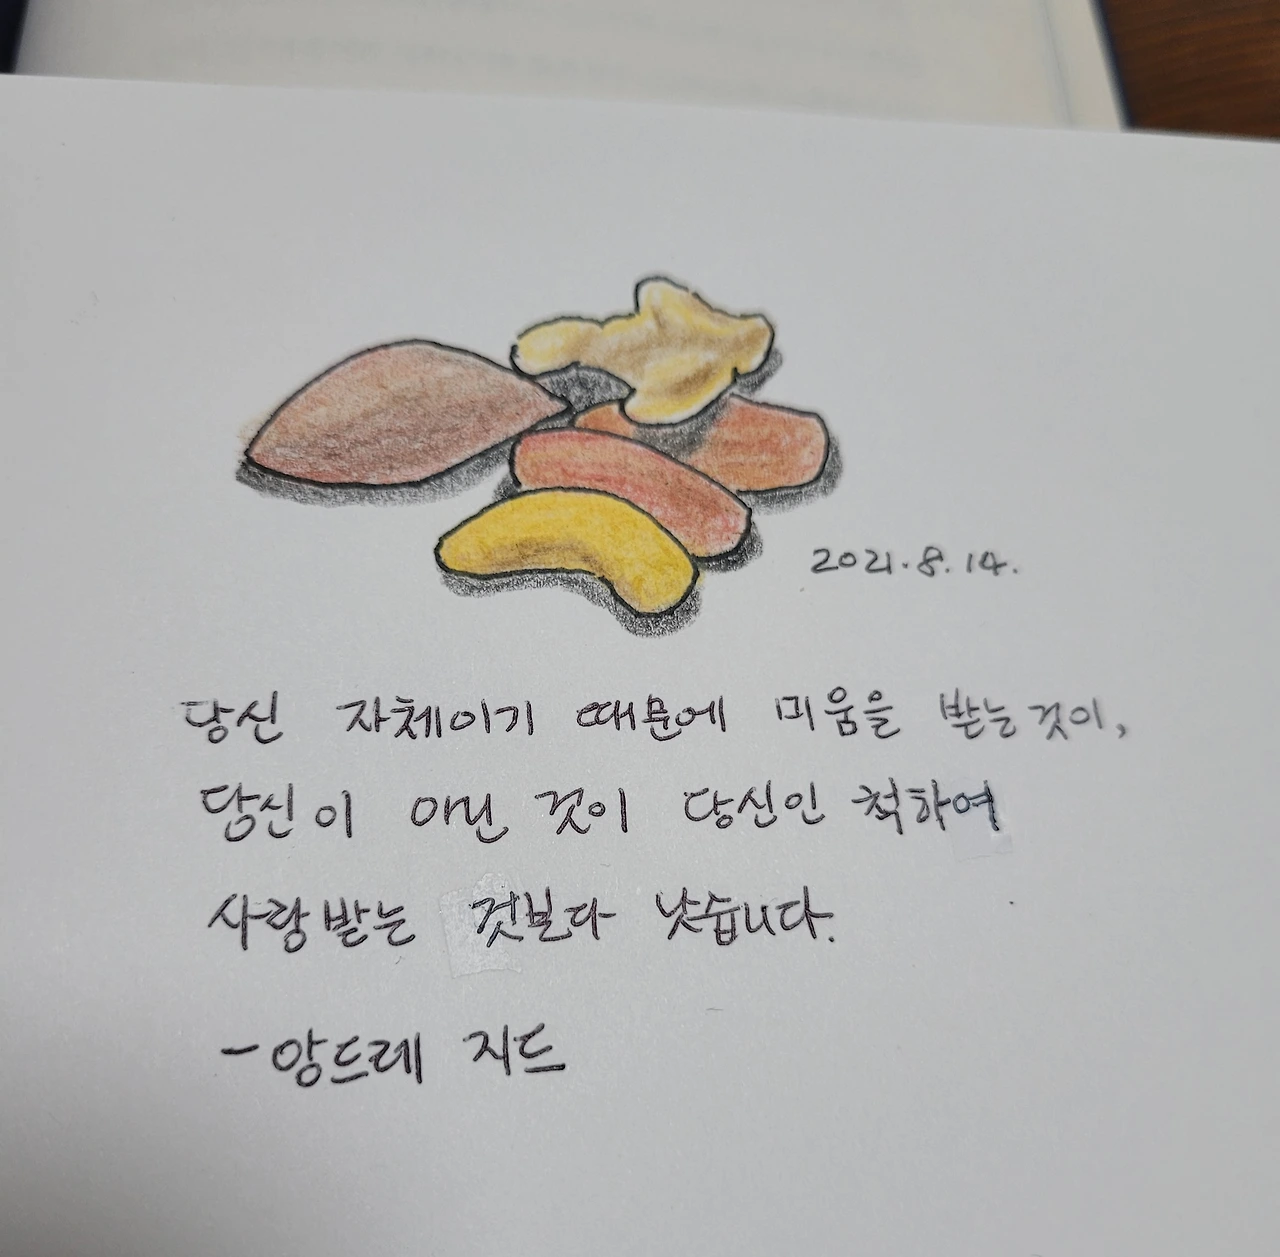 2021.8.14.
당신 자체이기 때문에 미움을 받는것이,
당신이 아닌 것이 당신인 척하여
사랑받는 것보다 낫습니다.
-앙드레 지드